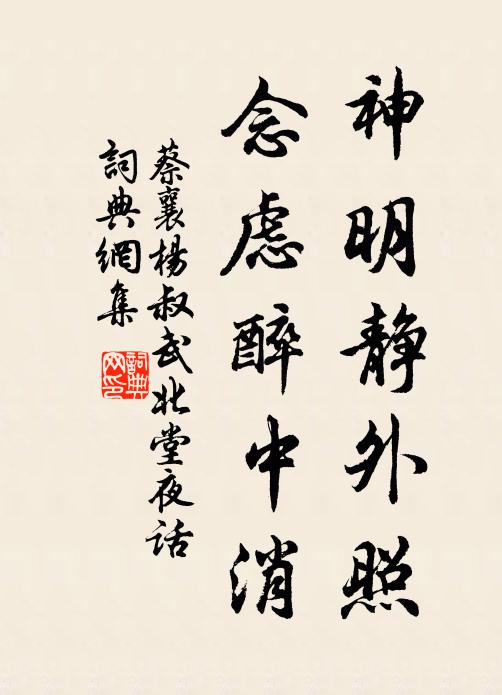 神明静外照
念慮醉中消
蔡襄楊叔武北堂夜話
詞典網集
詞典网印